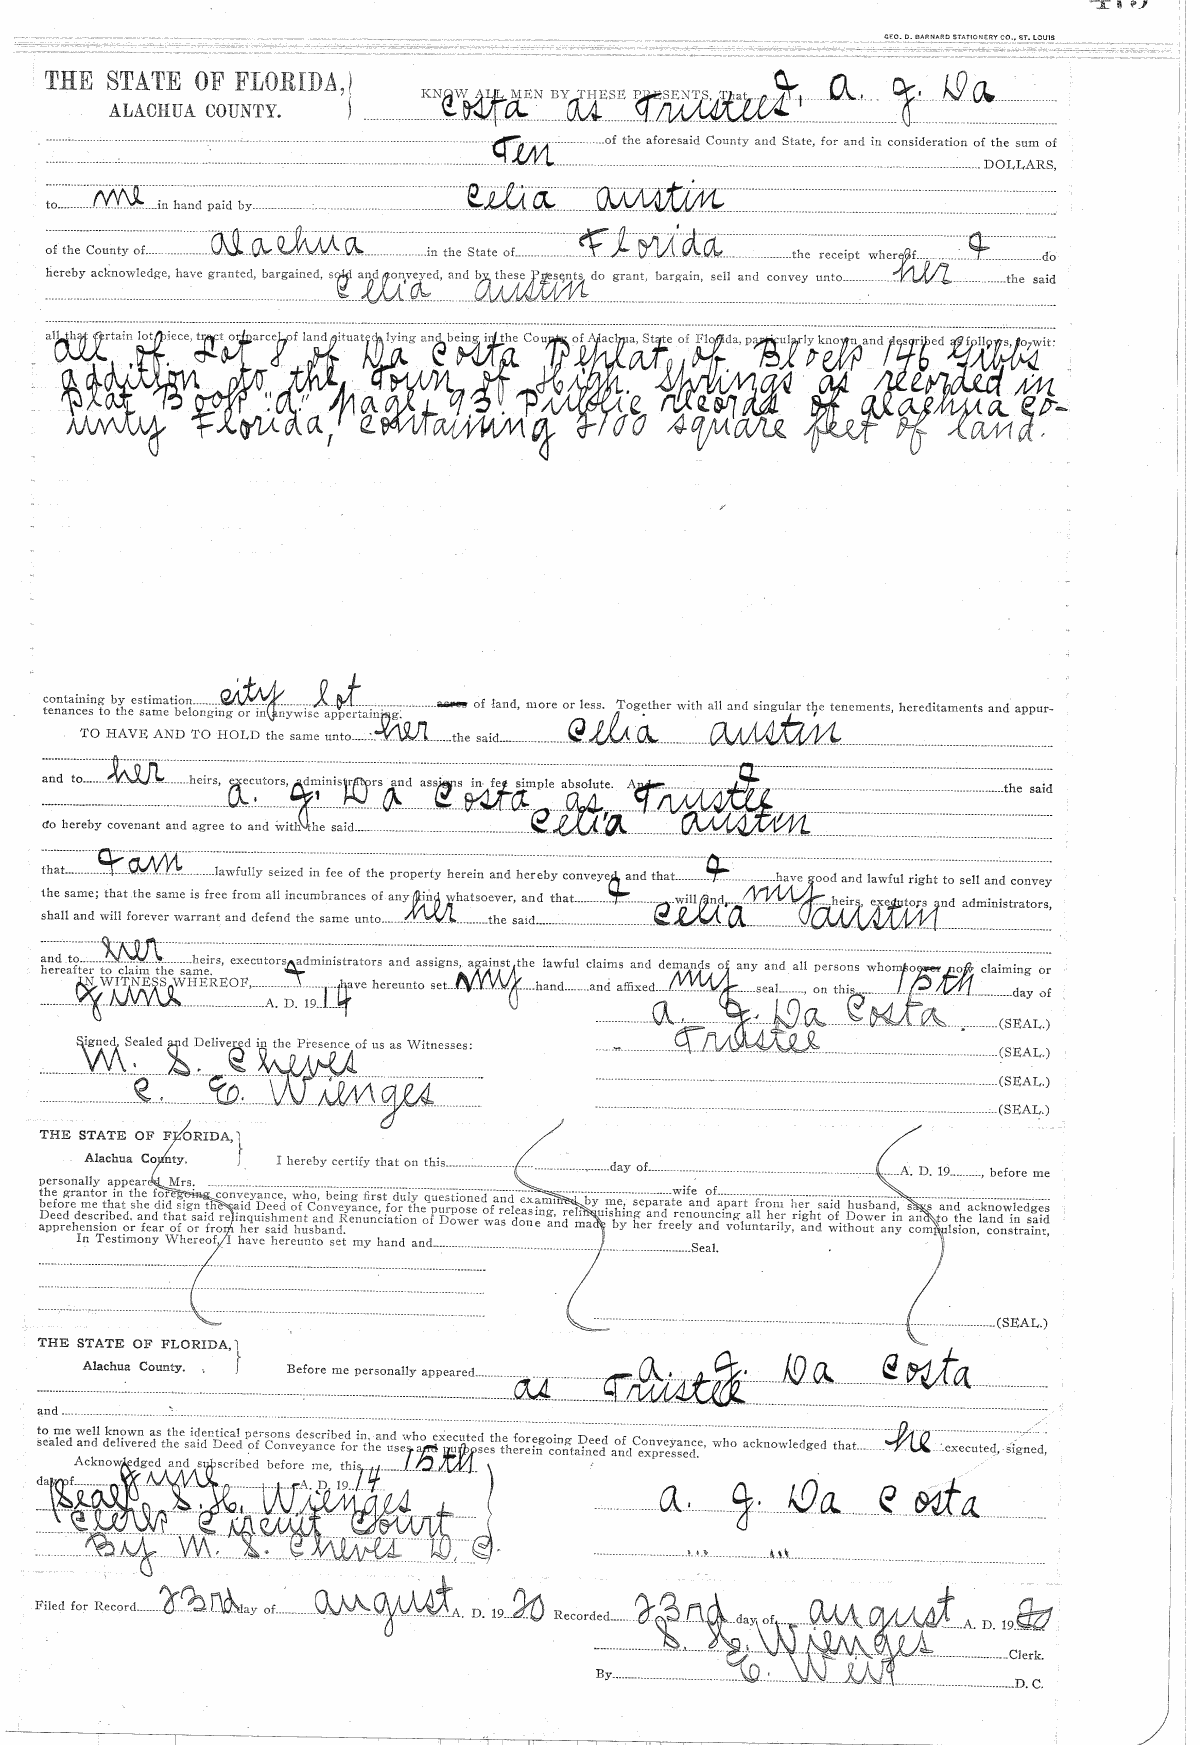 GEO. D. BARNARD STATIONERY CO., ST. LOUIS
THE STATE OF FLORIDA,
ALACHUA COUNTY.
KNOW ALL MEN BY THESE PRESENTS, That I, A. J. Da
Costa as Trustee
of the aforesaid County and State, for and in consideration of the sum of
Ten DOLLARS,
to me in hand paid by Celia Austin
of the County of Alachua in the State of Florida the receipt whereof I do
hereby acknowledge, have granted, bargained, sold and conveyed, and by these Presents do grant, bargain, sell and convey unto her the said
Celia Austin
all that certain lot, piece, tract or parcel of land situated, lying and being in the County of Alachua, State of Florida, particularly known and described as follows, to-wit:
All of Lot 8 of Da Costa Replat of Block 146 Gibbs
addition to the Town of High Springs as recorded in
Plat Book "A" page 93 Public records of Alachua Co-
unty Florida, containing 2100 square feet of land.
containing by estimation city lot acres of land, more or less. Together with all and singular the tenements, hereditaments and appur-
tenances to the same belonging or in anywise appertaining.
TO HAVE AND TO HOLD the same unto her the said Celia Austin
and to her heirs, executors, administrators and assigns in fee simple absolute. And I the said
A. J. Da Costa as Trustee
do hereby covenant and agree to and with the said Celia Austin
that I am lawfully seized in fee of the property herein and hereby conveyed, and that I have good and lawful right to sell and convey
the same; that the same is free from all incumbrances of any kind whatsoever, and that I will and my heirs, executors and administrators,
shall and will forever warrant and defend the same unto her the said Celia Austin
and to her heirs, executors, administrators and assigns, against the lawful claims and demands of any and all persons whomsoever now claiming or
hereafter to claim the same.
IN WITNESS WHEREOF, I have hereunto set my hand and affixed my seal, on this 15th day of
June A. D. 1914
A. J. Da Costa (SEAL.)
Signed, Sealed and Delivered in the Presence of us as Witnesses:
Trustee (SEAL.)
M. S. Cheves
(SEAL.)
C. E. Wienges
(SEAL.)
THE STATE OF FLORIDA,
Alachua County. I hereby certify that on this day of A. D. 19, before me
personally appeared Mrs. wife of
the grantor in the foregoing conveyance, who, being first duly questioned and examined by me, separate and apart from her said husband, says and acknowledges
before me that she did sign the said Deed of Conveyance, for the purpose of releasing, relinquishing and renouncing all her right of Dower in and to the land in said
Deed described, and that said relinquishment and Renunciation of Dower was done and made by her freely and voluntarily, and without any compulsion, constraint,
apprehension or fear of or from her said husband.
In Testimony Whereof, I have hereunto set my hand and Seal.
(SEAL.)
THE STATE OF FLORIDA,
Alachua County. Before me personally appeared A. J. Da Costa
as Trustee
and
to me well known as the identical persons described in, and who executed the foregoing Deed of Conveyance, who acknowledged that he executed, signed,
sealed and delivered the said Deed of Conveyance for the uses and purposes therein contained and expressed.
Acknowledged and subscribed before me, this 15th
day of June A. D. 1914
(Seal) S. H. Wienges
A. J. Da Costa
Clerk Circuit Court
By M. S. Cheves D. C.
Filed for Record 23rd day of August A. D. 1920 Recorded 23rd day of August A. D. 1920
S. H. Wienges Clerk.
By E. D.C.